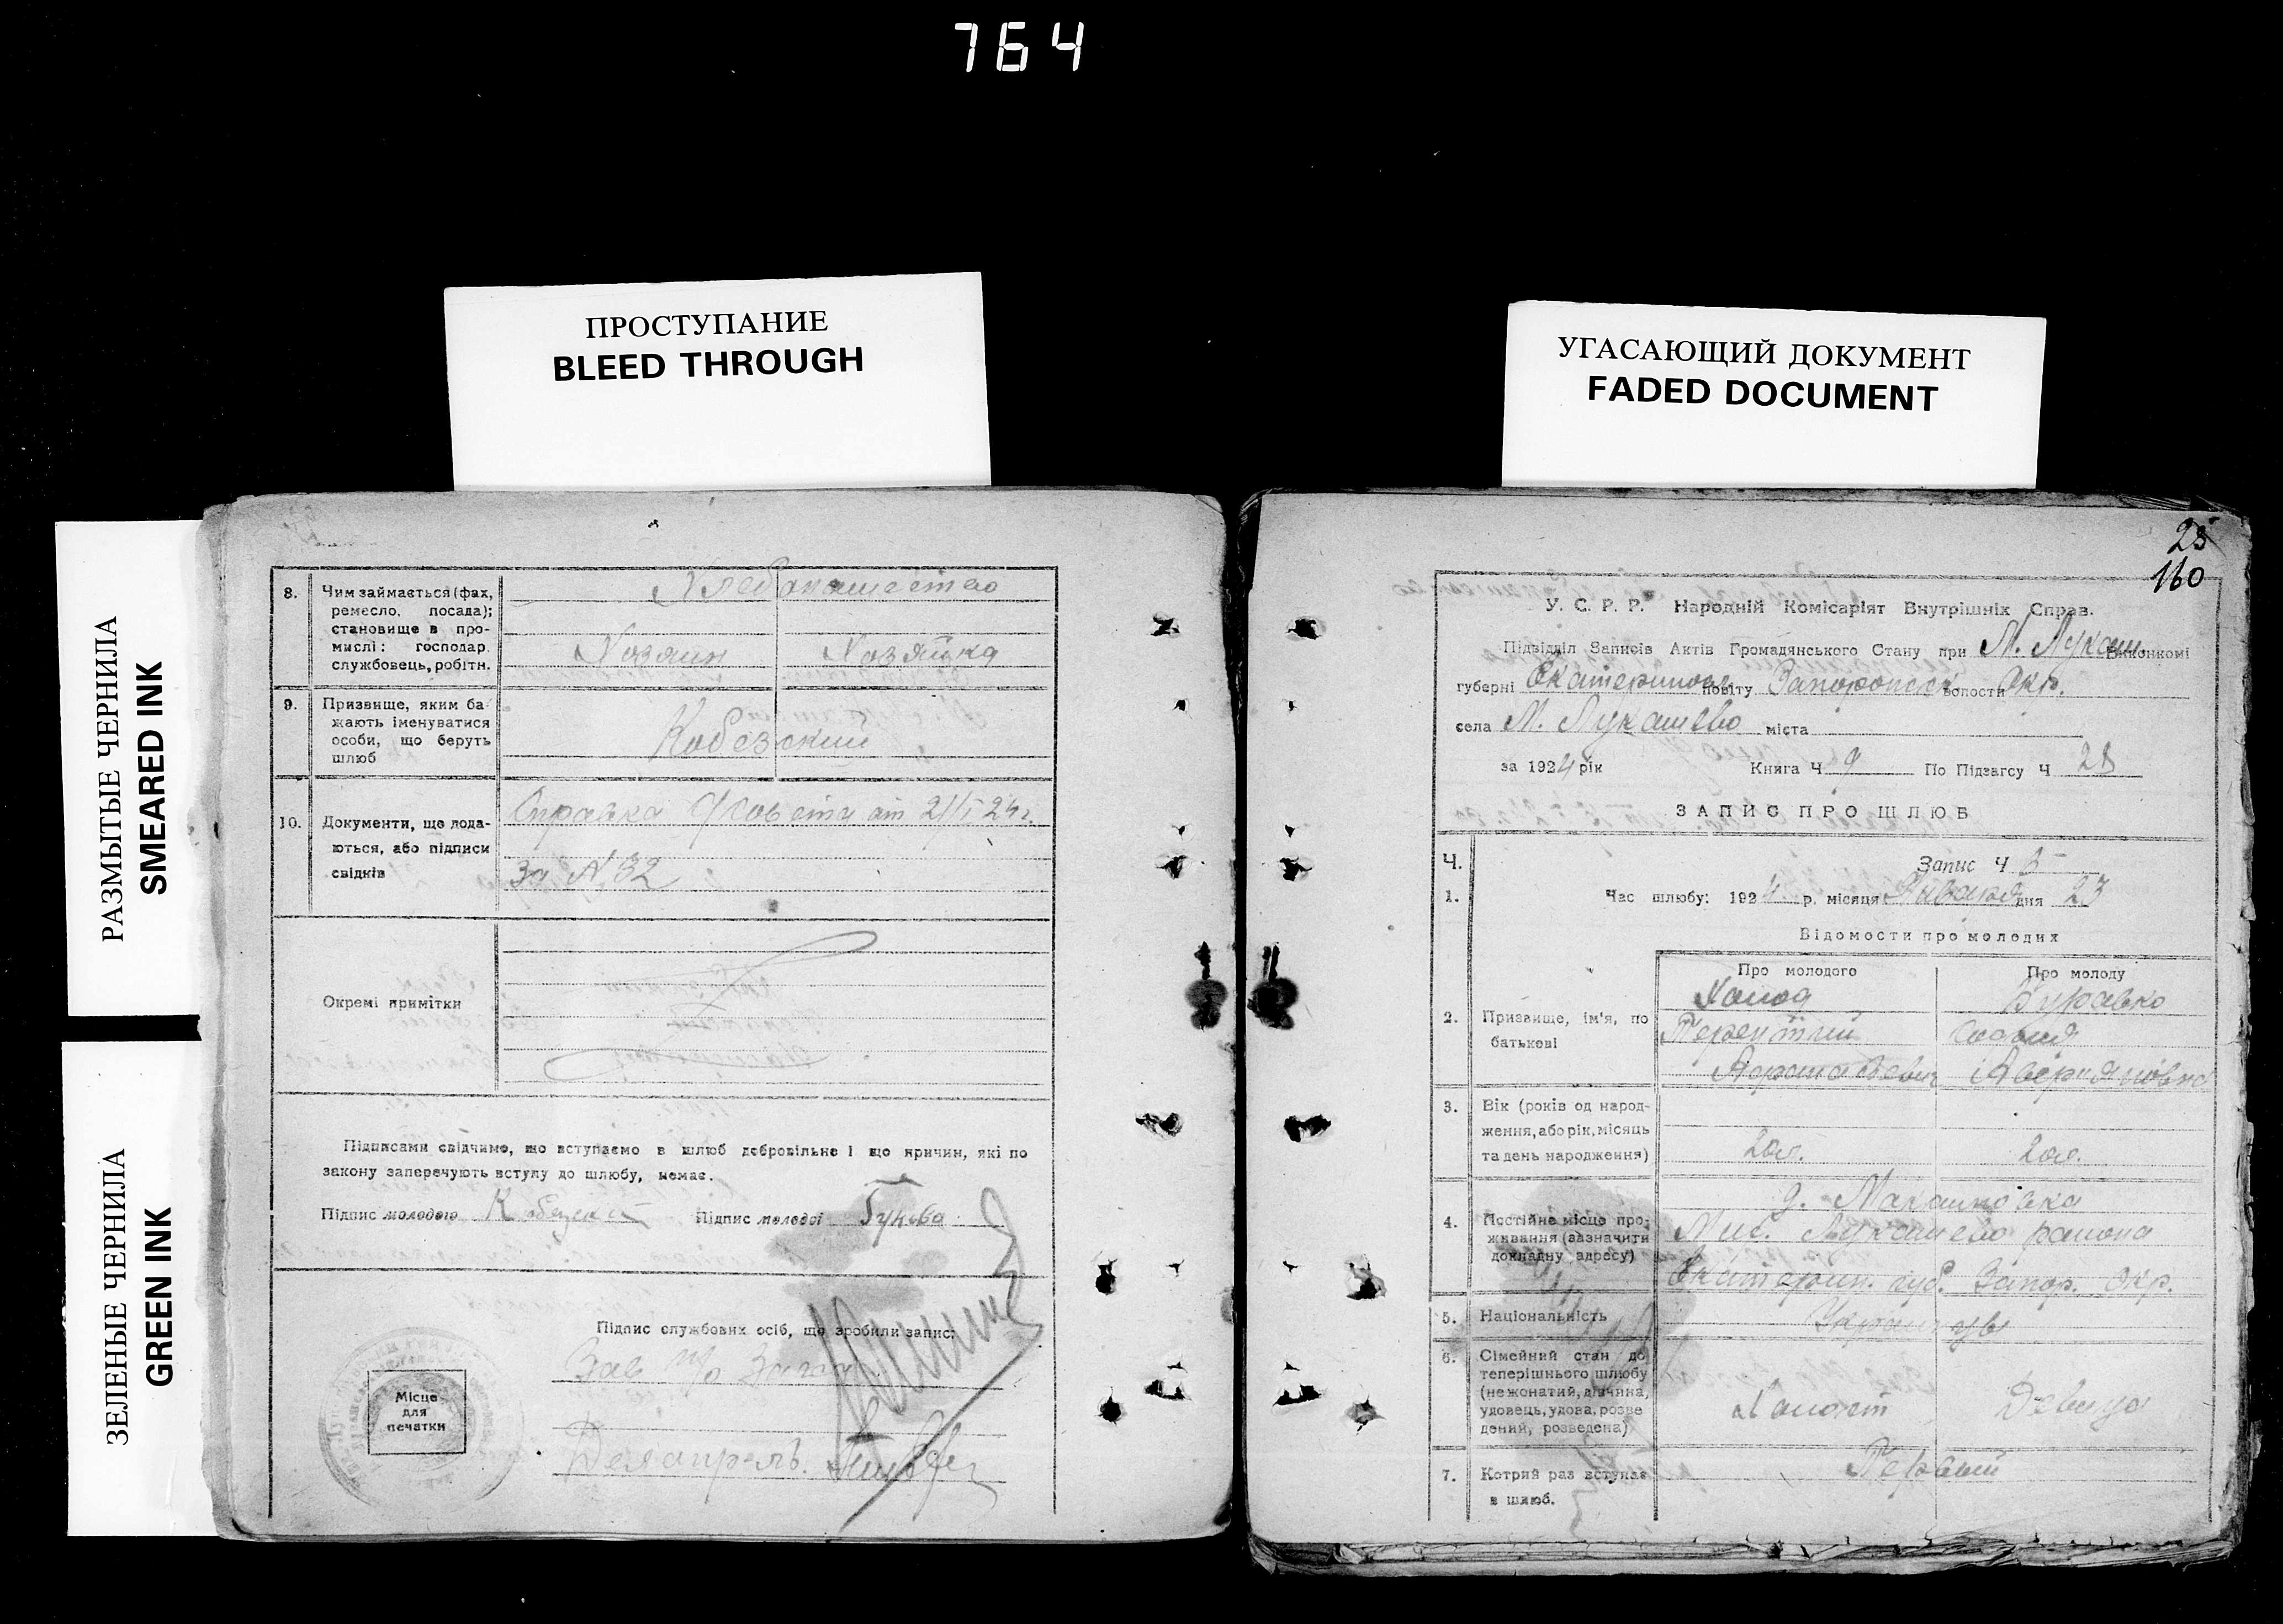 764
ПРОСТУПАНИЕ
BLEED THROUGH
УГАСАЮЩИЙ ДОКУМЕНТ
FADED DOCUMENT
РАЗМЫТЫЕ ЧЕРНИЛА
SMEARED INK
ЗЕЛЕНЫЕ ЧЕРНИЛА
GREEN INK
8. Чим займається (фах, ремесло, посада); становище в промислі: господар, службовець, робітн.
Хлебопашество
Хозяин Хозяйка
9. Призвище, яким бажають іменуватися особи, що беруть шлюб
Кобезский
10. Документи, що додаються, або підписи свідків
Справка от 21/I 24 г.
за № 32
Окремі примітки
Підписами свідчимо, що вступаємо в шлюб добровільне і що причин, які по
закону заперечують вступу до шлюбу, немає.
Підпис молодого Підпис молодої
Підпис службових осіб, що зробили запис:
Зав
Місце
для
печатки
Делопр
25
160
У. С. Р. Р. Народній Комісаріят Внутрішніх Справ.
Підвідділ Записів Актів Громадянського Стану при М. Лукаш. Виконкомі
губерні Екатеринос повіту Запорожск волости Окр.
села М. Лукашево міста
за 1924 рік Книга Ч 9 По Підзагсу Ч 28
ЗАПИС ПРО ШЛЮБ
Ч. Запис Ч 5
1. Час шлюбу: 1924 р. місяця Января дня 23
Відомости про молодих
Про молодого Про молоду
2. Призвище, ім'я, по батькові
Журавко
Терентий София
Аверьяновна
3. Вік (років од народження, або рік, місяць та день народження)
20 л. 20 л.
4. Постійне місце проживання (зазначити докладну адресу)
Лукашево района
Екатерин. губ. Запор. Окр.
5. Національність
Украинцы
6. Сімейний стан до теперішнього шлюбу (нежонатий, дівчина, удовець, удова, розведений, розведена)
Холост Девица
7. Котрий раз вступає в шлюб.
Первый